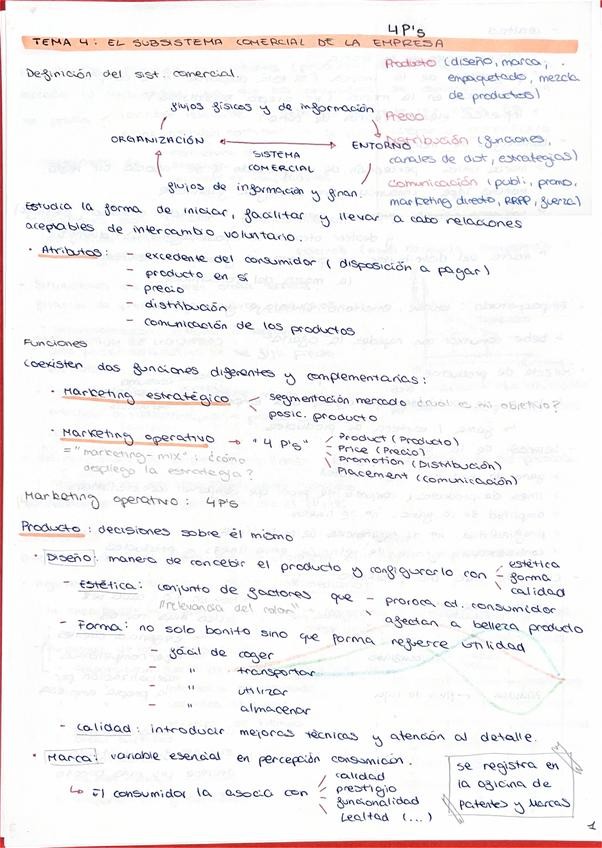 4P's
TEMA 4: EL SUBSISTEMA COMERCIAL DE LA EMPRESA
Producto (diseño, marca,
empaquetado, mezcla
de productos)
Precio
Distribución (funciones,
canales de dist, estrategias)
Comunicación (publi, promo,
marketing directo, RRPP, fuerza)
Definición del sist. comercial.
flujos físicos y de información
ORGANIZACIÓN
SISTEMA
COMERCIAL
ENTORNO
flujos de información y finan.
Estudia la forma de iniciar, facilitar y llevar a cabo relaciones
aceptables de intercambo voluntario.
· Atributos: - excedente del consumidor (disposición a pagar)
- producto en sí
- precio
- distribución
- comunicación de los productos
Funciones
Coexisten dos funciones diferentes y complementarias:
· Marketing estratégico segmentación mercado ¿cual es mi objetivo?
posic. producto
· Marketing operativo → "4 P's" Product (Producto)
="marketing-mix": ¿cómo Price (Precio)
despliego la estrategia? Promotion (Distribución)
Placement (comunicación)
Marketing operativo: 4P's
Producto: decisiones sobre él mismo
· Diseño: manera de concebir el producto y configurarlo con estética
forma
calidad
- Estética: conjunto de factores que - provoca at. consumidor
"relevancia del color" - afectan a belleza producto
- Forma: no solo bonito sino que forma refuerce utilidad
- fácil de coger
- " transportar
- " utilizar
- " almacenar
- Calidad: introducir mejoras técnicas y atención al detalle.
· Marca: variable esencial en percepción consumidor.
↳ El consumidor la asocia con calidad
prestigio
funcionalidad
lealtad (...)
se registra en
la oficina de
Patentes y Marcas
1